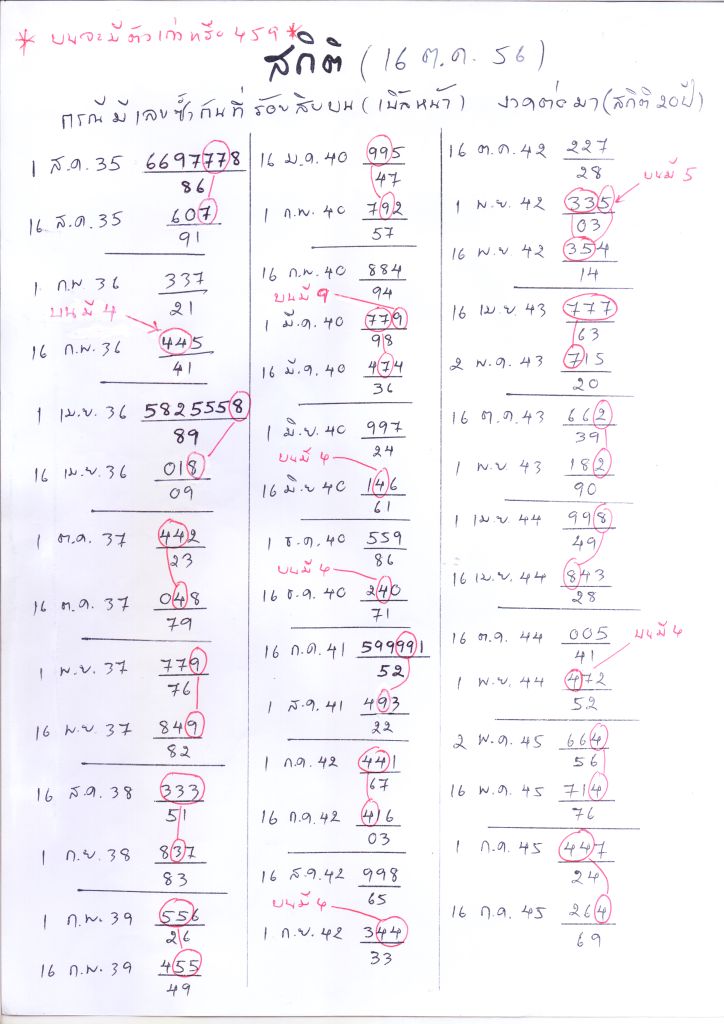 * บนจะมีตัวเก่าหรือ 459 *
สถิติ (16 ต.ค. 56)
กรณีมีเลขซ้ำกันที่ร้อยสิบบน (เบิ้ลหน้า) งวดต่อมา (สถิติ 20 ปี)
1 ส.ค. 35 6697778
86
16 ส.ค. 35 607
91
1 ก.พ. 36 337
21
บนมี 4
16 ก.พ. 36 445
41
1 เม.ย. 36 5825558
89
16 เม.ย. 36 018
09
1 ต.ค. 37 442
23
16 ต.ค. 37 048
79
1 พ.ย. 37 779
76
16 พ.ย. 37 849
82
16 ส.ค. 38 333
51
1 ก.ย. 38 837
83
1 ก.พ. 39 556
26
16 ก.พ. 39 455
49
16 ม.ค. 40 995
47
1 ก.พ. 40 792
57
16 ก.พ. 40 884
94
บนมี 9
1 มี.ค. 40 779
98
16 มี.ค. 40 474
36
1 มิ.ย. 40 997
24
บนมี 4
16 มิ.ย 40 146
61
1 ธ.ค. 40 559
86
บนมี 4
16 ธ.ค. 40 240
71
16 ก.ค. 41 599991
52
1 ส.ค. 41 493
22
1 ก.ค. 42 441
67
16 ก.ค. 42 416
03
16 ส.ค. 42 998
65
บนมี 4
1 ก.ย. 42 344
33
16 ต.ค. 42 227
28
บนมี 5
1 พ.ย. 42 335
03
16 พ.ย 42 354
14
16 เม.ย. 43 777
63
2 พ.ค. 43 715
20
16 ต.ค. 43 662
39
1 พ.ย. 43 182
90
1 เม.ย. 44 998
49
16 เม.ย. 44 843
28
16 ต.ค. 44 005
41
บนมี 4
1 พ.ย. 44 472
52
2 พ.ค. 45 664
56
16 พ.ค. 45 714
76
1 ก.ค. 45 447
24
16 ก.ค. 45 264
69